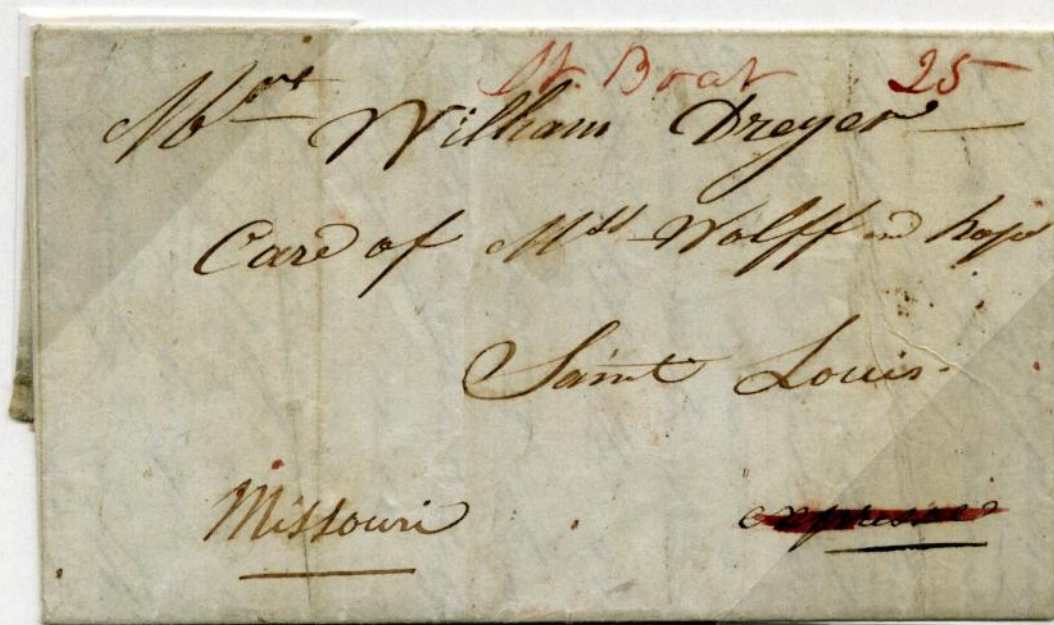 St. Boat 25
Mr William Dreyer
Care of Mss Wolff and
Saint Louis
Missouri